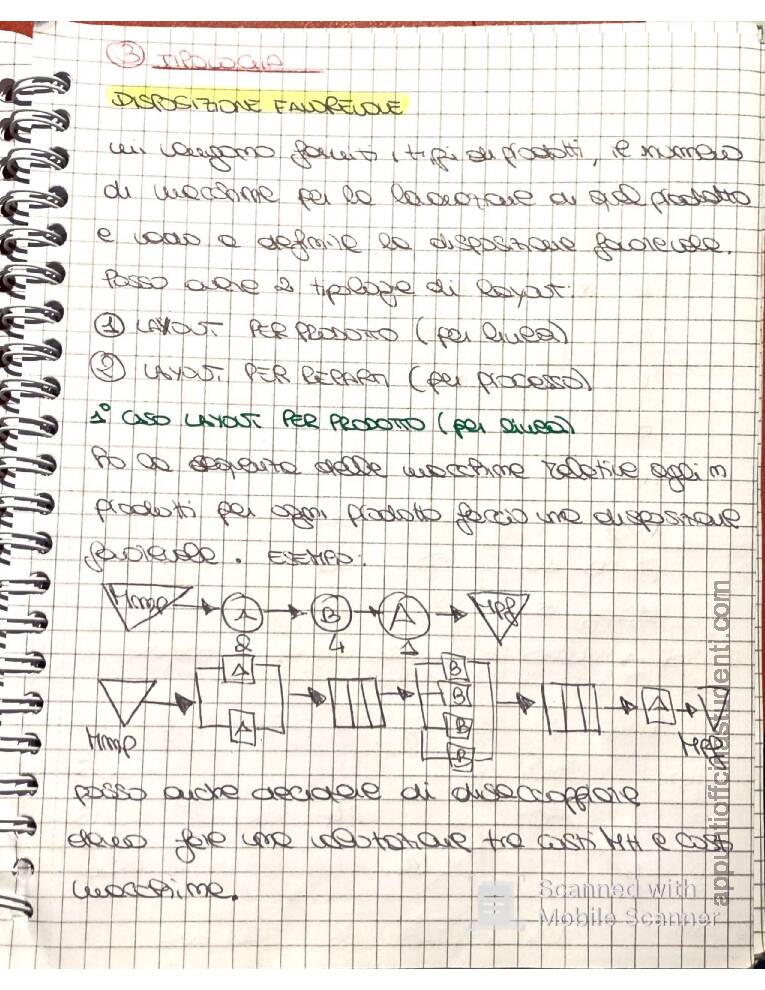 3 TIPOLOGIA
DISPOSIZIONE FAVOREVOLE
mi vengono forniti i tipi di prodotti, il numero
di macchine per la lavorazione di quel prodotto
e vado a definire la disposizione favorevole.
Posso avere 2 tipologie di layout:
1 LAYOUT PER PRODOTTO (per linea)
2 LAYOUT PER REPARTI (per processo)
1° CASO LAYOUT PER PRODOTTO (per linea)
Ho la sequenza delle macchine relative agli n
prodotti per ogni prodotto faccio una disposizione
favorevole. ESEMPIO:
Hmp A B A Hpf
2 4 1
A B
B
A B A
B
Hmp Hpf
posso anche decidere di disaccoppiare
devo fare una valutazione tra costi MH e costi
macchine.
Scanned with
Mobile Scanner
appuntiofficinastudenti.com